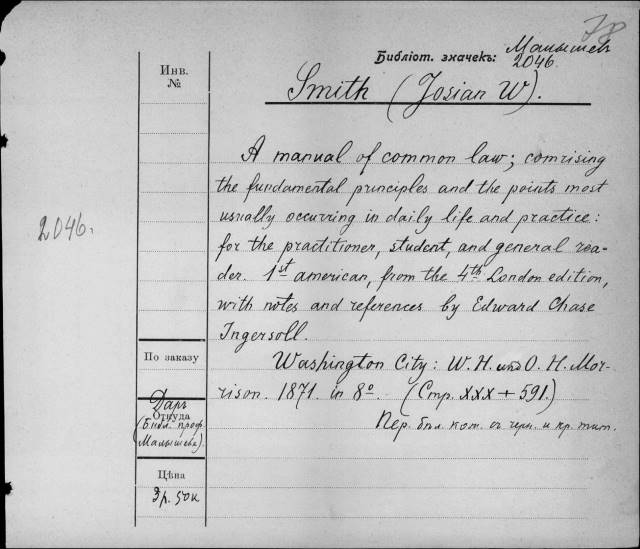 78
Библіот. значекъ: Малышев
2046.
Инв.
№
Smith (Josian W).
A manual of common law; comrising
the fundamental principles and the points most
usually occurring in daily life and practice:
2046.
for the practitioner, student, and general rea-
der. 1st american, from the 4th London edition,
with notes and references by Edward Chase
Ingersoll.
По заказу
Washington City: W. H. und O. H. Mor-
rison. 1871. in 8º. (Стр. XXX + 591.)
Даръ
Откуда
(Библ. проф.
Малышева).
Пер. бѣл. кож. съ черн. и кр. тит.
Цѣна
3 р. 50 к